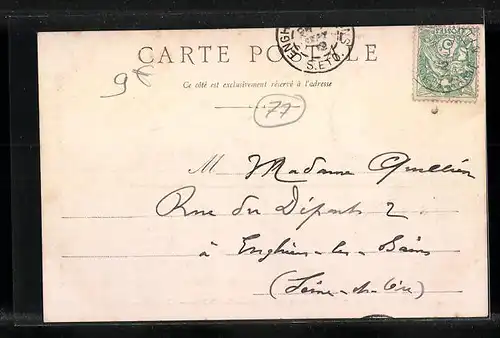 CARTE POSTALE
Ce côté est exclusivement réservé à l'adresse
9€
77
M Madame Quellien
Rue du Départ 2
à Enghien-les-Bains
(Seine-et-Oise)
ENGH
S. ET O.